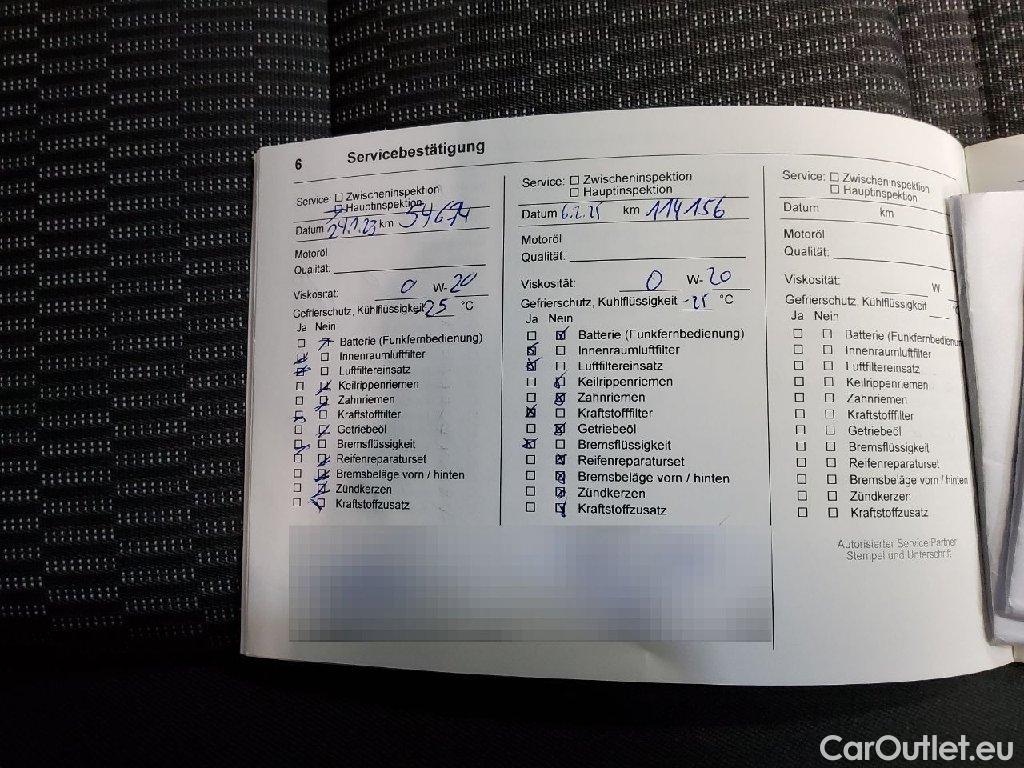 6 Servicebestätigung
Service: ☐ Zwischeninspektion
☐ Hauptinspektion
Datum 24.1.23 km
Motoröl
Qualität:
Viskosität: 0 W-20
Gefrierschutz, Kühlflüssigkeit -25 °C
Ja Nein
Batterie (Funkfernbedienung)
Innenraumluftfilter
Luftfiltereinsatz
Keilrippenriemen
Zahnriemen
Kraftstofffilter
Getriebeöl
Bremsflüssigkeit
Reifenreparaturset
Bremsbeläge vorn / hinten
Zündkerzen
Kraftstoffzusatz
Service: ☐ Zwischeninspektion
☐ Hauptinspektion
Datum 6.2.25 km 114156
Motoröl
Qualität:
Viskosität: 0 W-20
Gefrierschutz, Kühlflüssigkeit -25 °C
Ja Nein
Batterie (Funkfernbedienung)
Innenraumluftfilter
Luftfiltereinsatz
Keilrippenriemen
Zahnriemen
Kraftstofffilter
Getriebeöl
Bremsflüssigkeit
Reifenreparaturset
Bremsbeläge vorn / hinten
Zündkerzen
Kraftstoffzusatz
Service: ☐ Zwischeninspektion
☐ Hauptinspektion
Datum km
Motoröl
Qualität:
Viskosität: W-
Gefrierschutz, Kühlflüssigkeit
Ja Nein
Batterie (Funkfernbedienun
Innenraumluftfilter
Luftfiltereinsatz
Keilrippenriemen
Zahnriemen
Kraftstofffilter
Getriebeöl
Bremsflüssigkeit
Reifenreparaturset
Bremsbeläge vorn / hinten
Zündkerzen
Kraftstoffzusatz
Autorisierter Service Partner
Stempel und Unterschrift
CarOutlet.eu